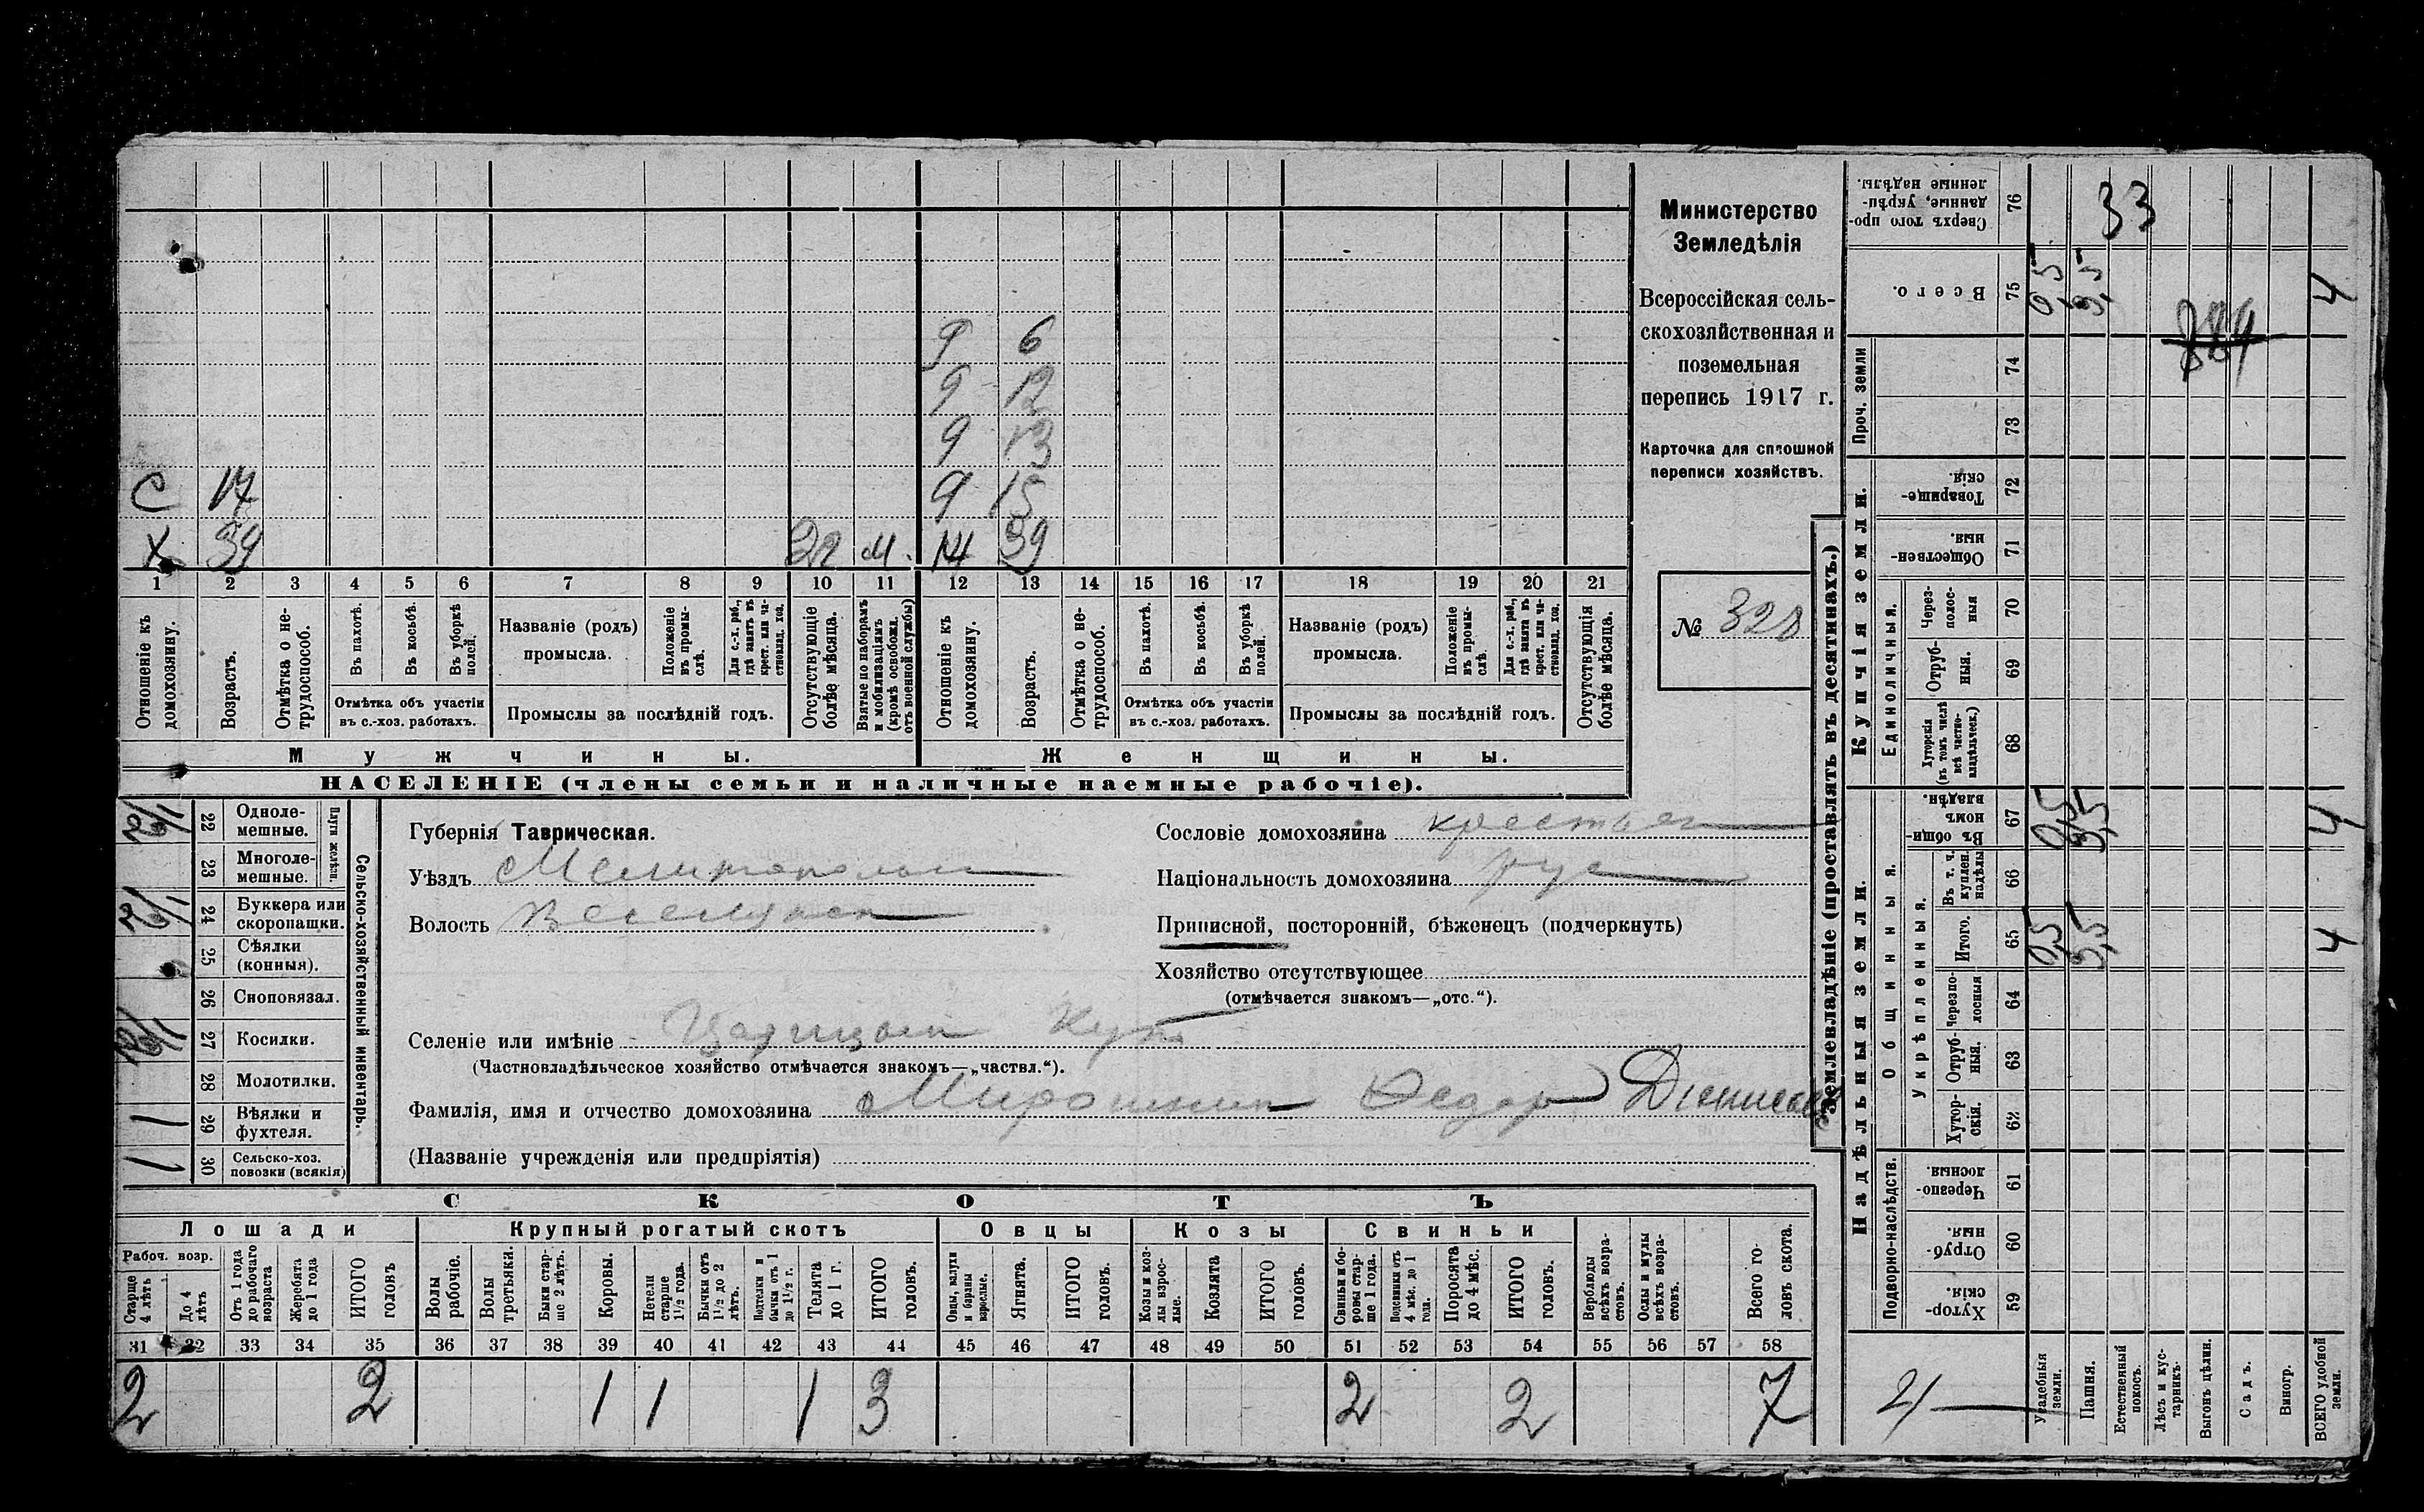 6
12
13
С 17
15
Х 39
М. 39
1 2 3 4 5 6 7 8 9 10 11 12 13 14 15 16 17 18 19 20 21
Отношеніе къ домохозяину.
Возрастъ.
Отмѣтка о не-трудоспособ.
Въ пахотѣ.
Въ косьбѣ.
Въ уборкѣ полей.
Отмѣтка объ участіи
въ с.-хоз. работахъ.
Названіе (родъ)
промысла.
Положеніе въ промы-слѣ.
Для с.-х. раб., гдѣ занятъ въ крест. или ча-стновлад. хоз.
Промыслы за послѣдній годъ.
Отсутствующіе болѣе мѣсяца.
Взятые по наборамъ и мобилизаціямъ (кромѣ освобожд. отъ военной службы)
Отношеніе къ домохозяину.
Возрастъ.
Отмѣтка о не-трудоспособ.
Въ пахотѣ.
Въ косьбѣ.
Въ уборкѣ полей.
Отмѣтка объ участіи
въ с.-хоз. работахъ.
Названіе (родъ)
промысла.
Положеніе въ промы-слѣ.
Для с.-х. раб., гдѣ занята въ крест. или ча-стновлад. хоз.
Промыслы за послѣдній годъ.
Отсутствующія болѣе мѣсяца.
Мужчины.
Женщины.
НАСЕЛЕНІЕ (члены семьи и наличные наемные рабочіе).
Министерство
Земледѣлія
Всероссійская сель-
скохозяйственная и
поземельная
перепись 1917 г.
Карточка для сплошной
переписи хозяйствъ.
№ 328
22 Одноле-мешные.
23 Многоле-мешные.
Плуги желѣзн.
24 Буккера или скоропашки.
25 Сѣялки (конныя).
26 Сноповязал.
27 Косилки.
28 Молотилки.
1 29 Вѣялки и фухтеля.
1 30 Сельско-хоз. повозки (всякія)
Сельско-хозяйственный инвентарь.
Губернія Таврическая.
Уѣздъ Мелитополь
Волость
Сословіе домохозяина крестьян
Національность домохозяина рус
Приписной, посторонній, бѣженецъ (подчеркнуть)
Хозяйство отсутствующее
(отмѣчается знакомъ—„отс.“).
Селеніе или имѣніе Царицын Кут
(Частновладѣльческое хозяйство отмѣчается знакомъ—„частвл.“).
Фамилія, имя и отчество домохозяина Мирошнич Федор
(Названіе учрежденія или предпріятія)
СКОТЪ
Лошади
Рабоч. возр.
Старше 4 лѣтъ
До 4 лѣтъ
Отъ 1 года до рабочаго возраста
Жеребята до 1 года
ИТОГО головъ
Крупный рогатый скотъ
Волы рабочіе.
Волы третьяки.
Быки стар-ше 2 лѣтъ.
Коровы.
Нетели старше 1½ года.
Бычки отъ 1½ до 2 лѣтъ.
Подтелки и бычки отъ 1 до 1½ г.
Телята до 1 г.
ИТОГО головъ.
Овцы
Овцы, валухи и бараны взрослые.
Ягнята.
ИТОГО головъ.
Козы
Козы и коз-лы взрос-лые.
Козлята
ИТОГО головъ.
Свиньи
Свиньи и бо-ровы стар-ше 1 года.
Подсвинки отъ 4 мѣс. до 1 года.
Поросята до 4 мѣс.
ИТОГО головъ.
Верблюды всѣхъ возра-стовъ.
Ослы и мулы всѣхъ возра-стовъ.
Всего го-ловъ скота.
31 32 33 34 35 36 37 38 39 40 41 42 43 44 45 46 47 48 49 50 51 52 53 54 55 56 57 58
2 2 1 1 1 3 2 2 7
Землевладѣніе (проставлять въ десятинахъ.)
Надѣльныя земли.
Купчія земли.
Проч. земли
Подворно-наслѣдств.
Общинныя.
Укрѣпленныя.
Единоличныя.
Сверхъ того про-данные, укрѣп-ленные надѣлы. 76 33
Всего. 75 0,5 3,5 4
74
73
Товарище-скія. 72
Обществен-ныя. 71
Через-полос-ныя 70
Отруб-ныя. 69
Хуторскія (въ томъ числѣ всѣ частно-владѣльческ.) 68
Въ общин-номъ владѣн. 67 0,5 3,5 4
Въ т. ч. куплен. надѣлы 66
Итого. 65 0,5 3,5 4
Черезпо-лосныя 64
Отруб-ныя. 63
Хутор-скія. 62
Черезпо-лосныя. 61
Отруб-ныя. 60
Хутор-скія. 59
Усадебныя земли.
Пашня.
Естественный покосъ.
Лѣсъ и кус-тарникъ.
Выгонъ цѣлин.
Садъ.
Виногр.
ВСЕГО удобной земли.